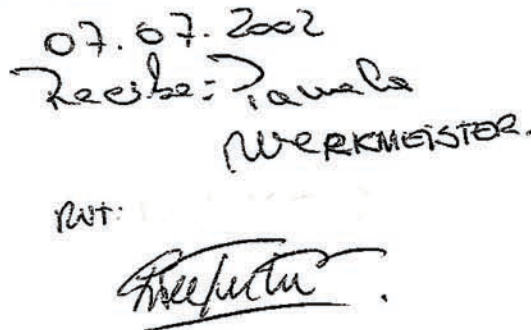 07.07.2002
Recibe: Pamela
WERKMEISTER.
RUT: